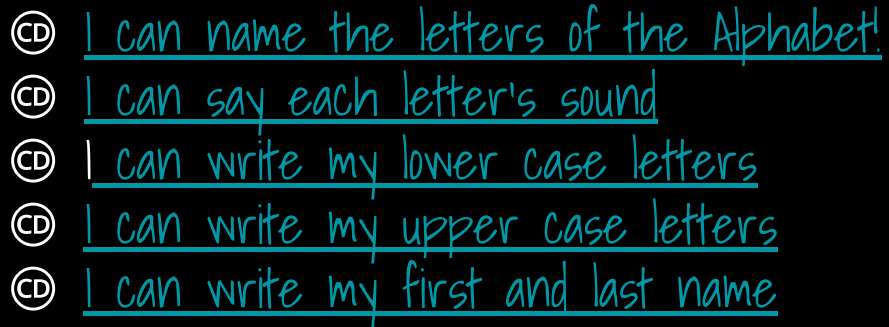 CD I can name the letters of the Alphabet!
CD I can say each letter's sound
CD I can write my lower case letters
CD I can write my upper case letters
CD I can write my first and last name